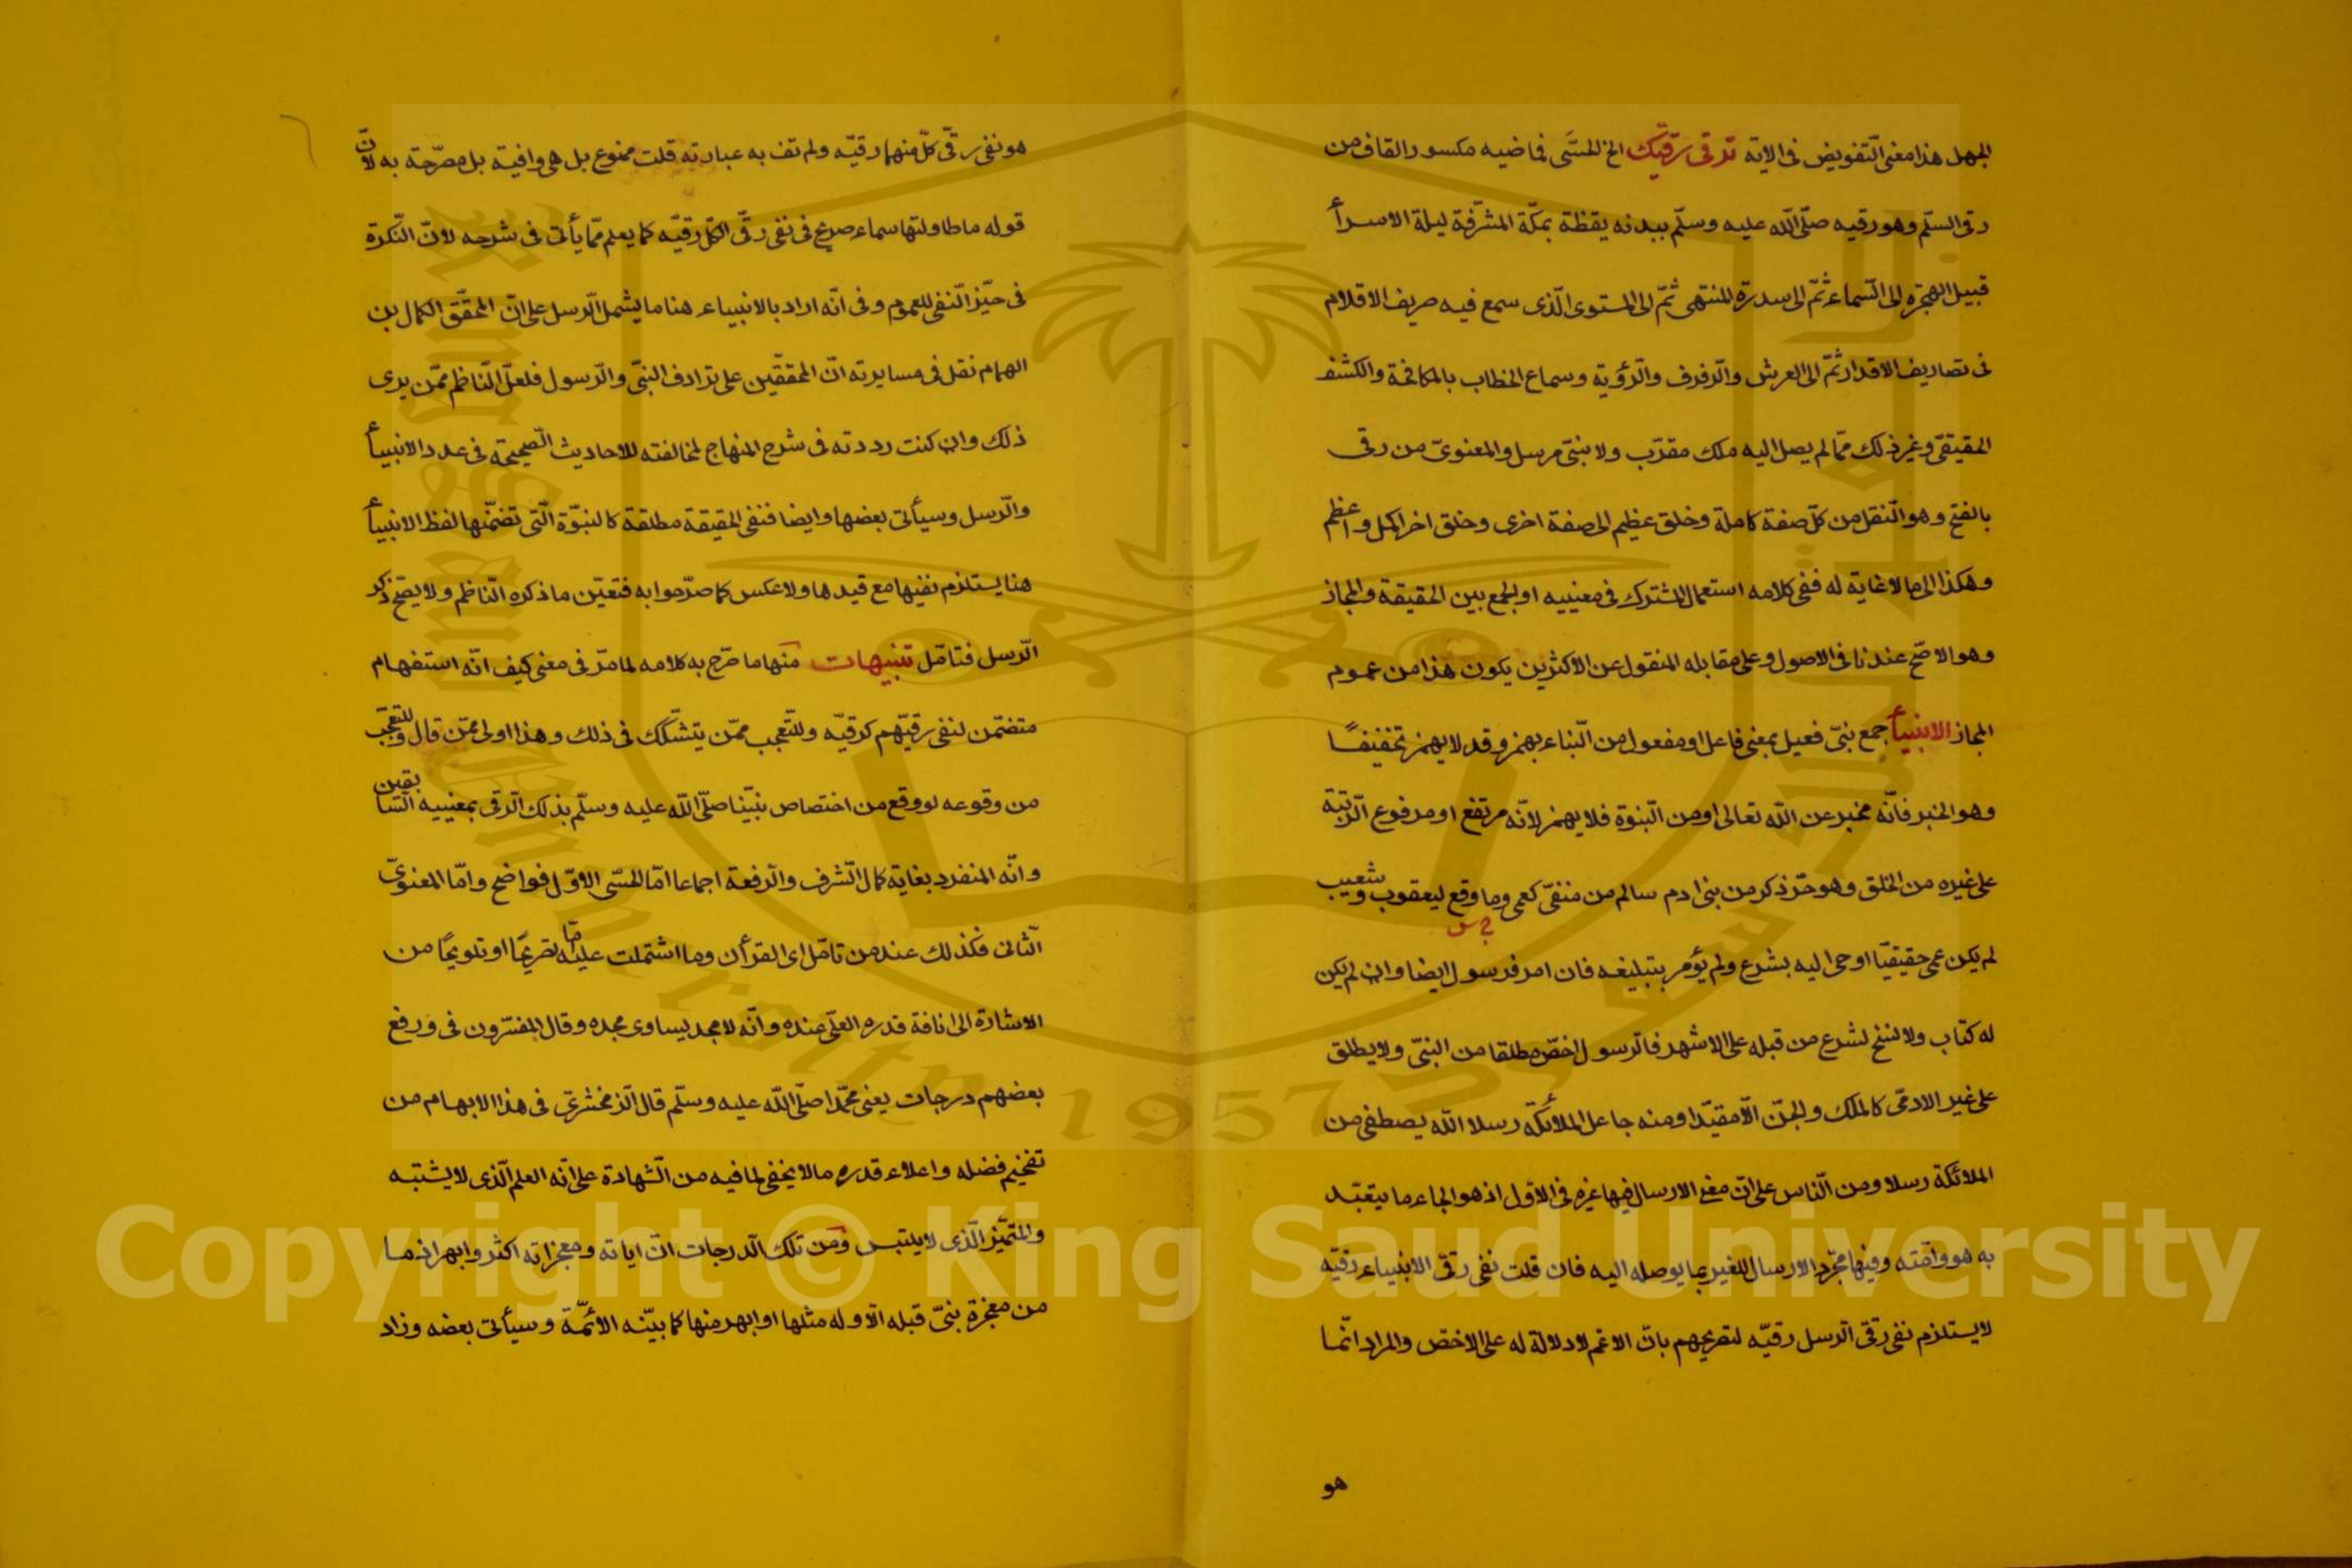 الجهل هذا معنى التّفويض فى الاية ترقى رقيّك الخ الحسّى فماضيه مكسور القاف من
رقى السلّم وهو رقيه صلّى اللّه عليه وسلّم ببدنه يقظة بمكّة المشرّفة ليلة الاسرأ
قبيل الهجرة الى السّماء ثمّ الى سدرة المنتهى ثمّ الى المستوى الّذى سمع فيه صريف الاقلام
فى تصاريف الاقدار ثمّ الى العرش والرّفرف والرّؤية وسماع الخطاب بالمكافحة والكشف
الحقيقىّ وغير ذلك ممّا لم يصل اليه ملك مقرّب ولا نبىّ مرسل والمعنوىّ من رقى
بالفتح وهو النّقل من كلّ صفة كاملة وخلق عظيم الى صفة اخرى وخلق اخر اكمل واعظم
وهكذا الى ما لا غاية له ففى كلامه استعمال المشترك فى معنييه او الجمع بين الحقيقة والمجاز
وهو الاصّح عندنا فى الاصول وعلى مقابله المنقول عن الاكثرين يكون هذا من عموم
المجاز الانبيأ جمع نبىّ فعيل بمعنى فاعل او مفعول من النّباء بهمز وقد لا يهمز تخفيفًا
وهو الخبر فانّه مخبر عن اللّه تعالى او من النّبوة فلا يهمز لانّه مرتفع او مرفوع الرّتبة
على غيره من الخلق وهو حرّ ذكر من بنى ادم سالم من منفّى كعمى وما وقع ليعقوب وشعيب
لم يكن عمى حقيقيّا اوحى اليه بشرع ولم يؤمر بتبليغه فان امر فرسول ايضا وان لم يكن
له كتاب ولا نسخ لشرع من قبله على الاشهر فالرّسول اخصّ مطلقا من النبىّ ولا يطلق
على غير الادمىّ كالملك والجنّ الّا مقيّدا ومنه جاعل الملأئكة رسلا اللّه يصطفى من
الملائكة رسلا ومن النّاس على انّ معنى الارسال فيها غيره فى الاوّل اذ هو ايحاء ما يتعبّد
به هو وامّته وفيها مجرّد الارسال للغير بما يوصله اليه فان قلت نفى رقىّ الانبياء رقيّه
لا يستلزم نفى رقىّ الرّسل رقيّه لتصريحهم بانّ الاعّم لا دلالة له على الاخصّ والمراد انّما
هو
هو نفى رقّى كلّ منهما رقيّه ولم تف به عبارته قلت ممنوع بل هى وافية بل مصرّحة به لانّ
قوله ما طاولتها سماء صريح فى نفى رقّى الكلّ رقيّه كما يعلم ممّا يأتى فى شرحه لانّ النّكرة
فى حيّز النّفى للعموم وفى انّه اراد بالانبياء هنا ما يشمل الرّسل على انّ المحقّق الكمال بن
الهمام نقل فى مسايرته انّ المحقّقين على ترادف النبىّ والرّسول فلعلّ النّاظم ممّن يرى
ذلك وان كنت رددته فى شرح المنهاج لمخالفته للاحاديث الصّحيحة فى عدد الانبيأ
والرّسل وسيأتى بعضها وايضا فنفى الحقيقة مطلقة كالنبوّة الّتى تضمّنها لفظ الانبيأ
هنا يستلزم نفيها مع قيدها ولا عكس كما صرّحوا به فتعيّن ما ذكره النّاظم ولا يصّح ذكر
الرّسل فتامّل تنبيهات منها ما صرّح به كلامه لما مرّ فى معنى كيف انّه استفهام
متضمّن لنفى رقيّهم كرقيّه وللتّعجب ممّن يتشّكك فى ذلك وهذا اولى ممّن قال وللتعجّب
من وقوعه لو وقع من اختصاص نبيّنا صلّى اللّه عليه وسلّم بذلك الرّقى بمعنييه السّابقين
وانّه المنفرد بغاية كمال الشّرف والرّفعة اجماعا امّا الحسّى الاوّل فواضح وامّا المعنوىّ
الثّانى فكذلك عند من تامّل اى القرأن وما اشتملت عليه ممّا تصريحًا او تلويحًا من
الاشارة الى انافة قدره العلّى عنده وانّه لا مجد يساوى مجده وقال المفسّرون فى ورفع
بعضهم درجات يعنى محمّدا صلّى اللّه عليه وسلّم قال الزّمخشرىّ فى هذا الابهام من
تفخيم فضله واعلاء قدره ما لا يخفى لما فيه من الشّهادة على انّه العلم الّذى لا يشتبه
والمتميّز الّذى لا يلتبس ومن تلك الدّرجات انّ اياته ومعجزاته اكثر وابهر اذ ما
من معجزة نبىّ قبله الّا وله مثلها او ابهر منها كما بيّنه الائمّة وسيأتى بعضه وزاد
Copyright © King Saud University
King Saud University 1957